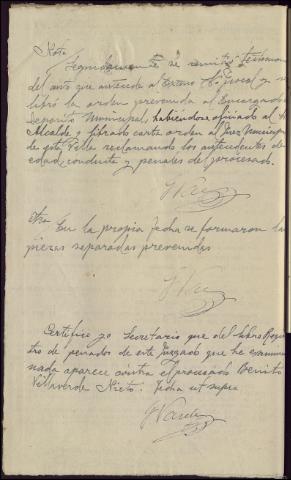 Nota
Seguidamente se remitió testimon
del auto que antecede al Excmo Sr Fiscal y se
libró la orden prevenida al Encargado
Depósito Municipal, habiendose oficiado al
Alcalde y librado carta orden al Juez Municip
de esta Villa reclamando los antecedentes de
edad, conducta y penales del procesado.
Otra En la propia fecha se formaron las
piezas separadas prevenidas
Certifico yo Secretario que del libro Regis
tro de penados de este Juzgado que he exami
nado aparece contra el procesado Benito
Villaverde Nieto. Fecha ut supra